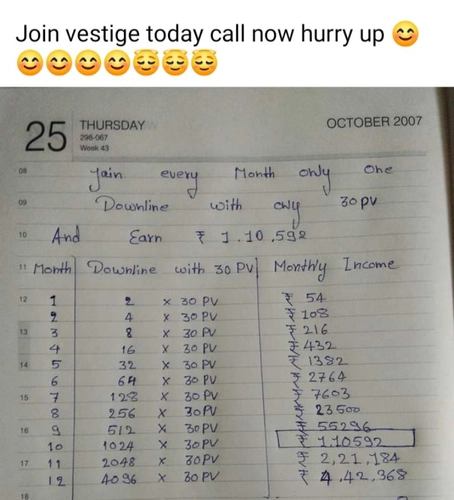 Join vestige today call now hurry up 😊
😊😊😊😊😇😇😇
25 THURSDAY OCTOBER 2007
298-067
Week 43
08 Jain every Month only One
09 Downline with cwy 30 PV
10 And Earn ₹ 1.10,592
11 Month Downline with 30 PV Monthly Income
12 1 2 x 30 PV ₹ 54
2 4 x 30 PV ₹ 108
13 3 8 x 30 PV ₹ 216
4 16 x 30 PV ₹ 432
14 5 32 x 30 PV ₹ 1382
6 64 x 30 PV ₹ 2764
15 7 128 x 30 PV ₹ 7603
8 256 x 30 PV ₹ 23500
16 9 512 x 30 PV ₹ 55296
10 1024 x 30 PV ₹ 110592
17 11 2048 x 30 PV ₹ 2,21,184
12 4096 x 30 PV ₹ 4,42,368
18